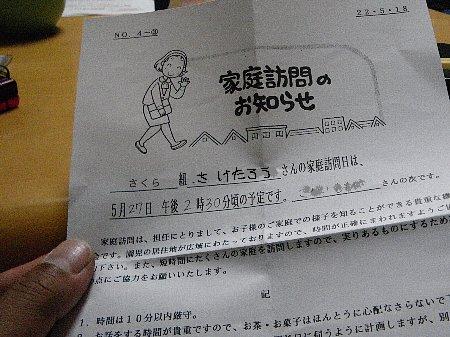 NO. 4-③
22.5.18
家庭訪問の
お知らせ
さくら 組 さけたろう さんの家庭訪問日は、
5月27日 午後2時30分頃の予定です。 さんの次です。
家庭訪問は、担任にとりまして、お子様のご家庭での様子を知ることができる貴重な機
会です。園児の居住地が広域にわたっておりますので、時間が正確にまわれますようご協
下さい。また、短時間にたくさんの家庭を訪問しますので、実りあるものにするため
点にご協力をお願いいたします。
記
1. 時間は10分以内厳守。
お話をする時間が貴重ですので、お茶・お菓子はほんとうに心配なさらないで下
に伺うように計画しますが、別